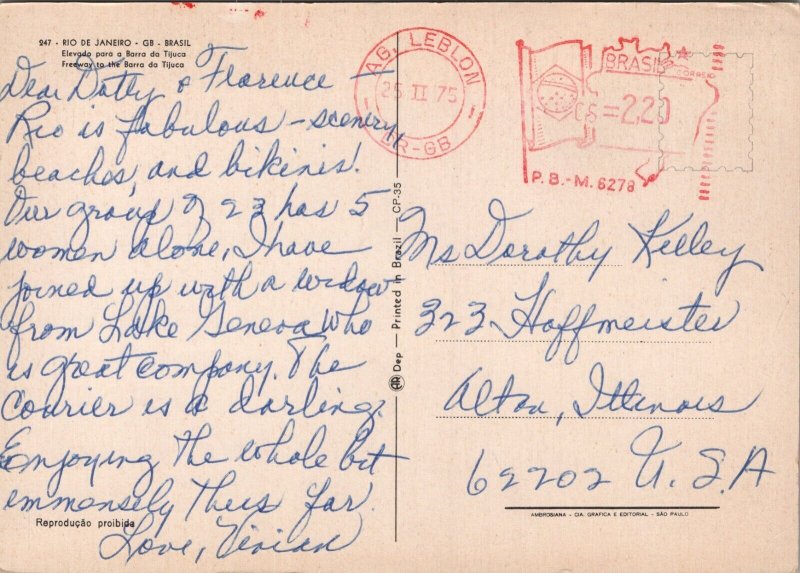 247 - RIO DE JANEIRO - GB - BRASIL
Elevado para a Barra da Tijuca
Freeway to the Barra da Tijuca
Dear Dotty & Florence —
Rio is fabulous - scenery,
beaches, and bikinis!
Our group of 23 has 5
women alone, I have
joined up with a widow
from Lake Geneva who
is great company. The
courier is a darling.
Enjoying the whole bit
immensely thus far.
Love, Vivian
Reprodução proibida
Dep — Printed in Brazil — CP-35
AG. LEBLON
25 II 75
DR-GB
BRASIL
CORREIO
CS=2,20
P.B.-M. 6278
Ms Dorothy Kelley
323 Hoffmeister
Alton, Illinois
62202 U.S.A
AMBROSIANA - CIA. GRAFICA E EDITORIAL - SÃO PAULO